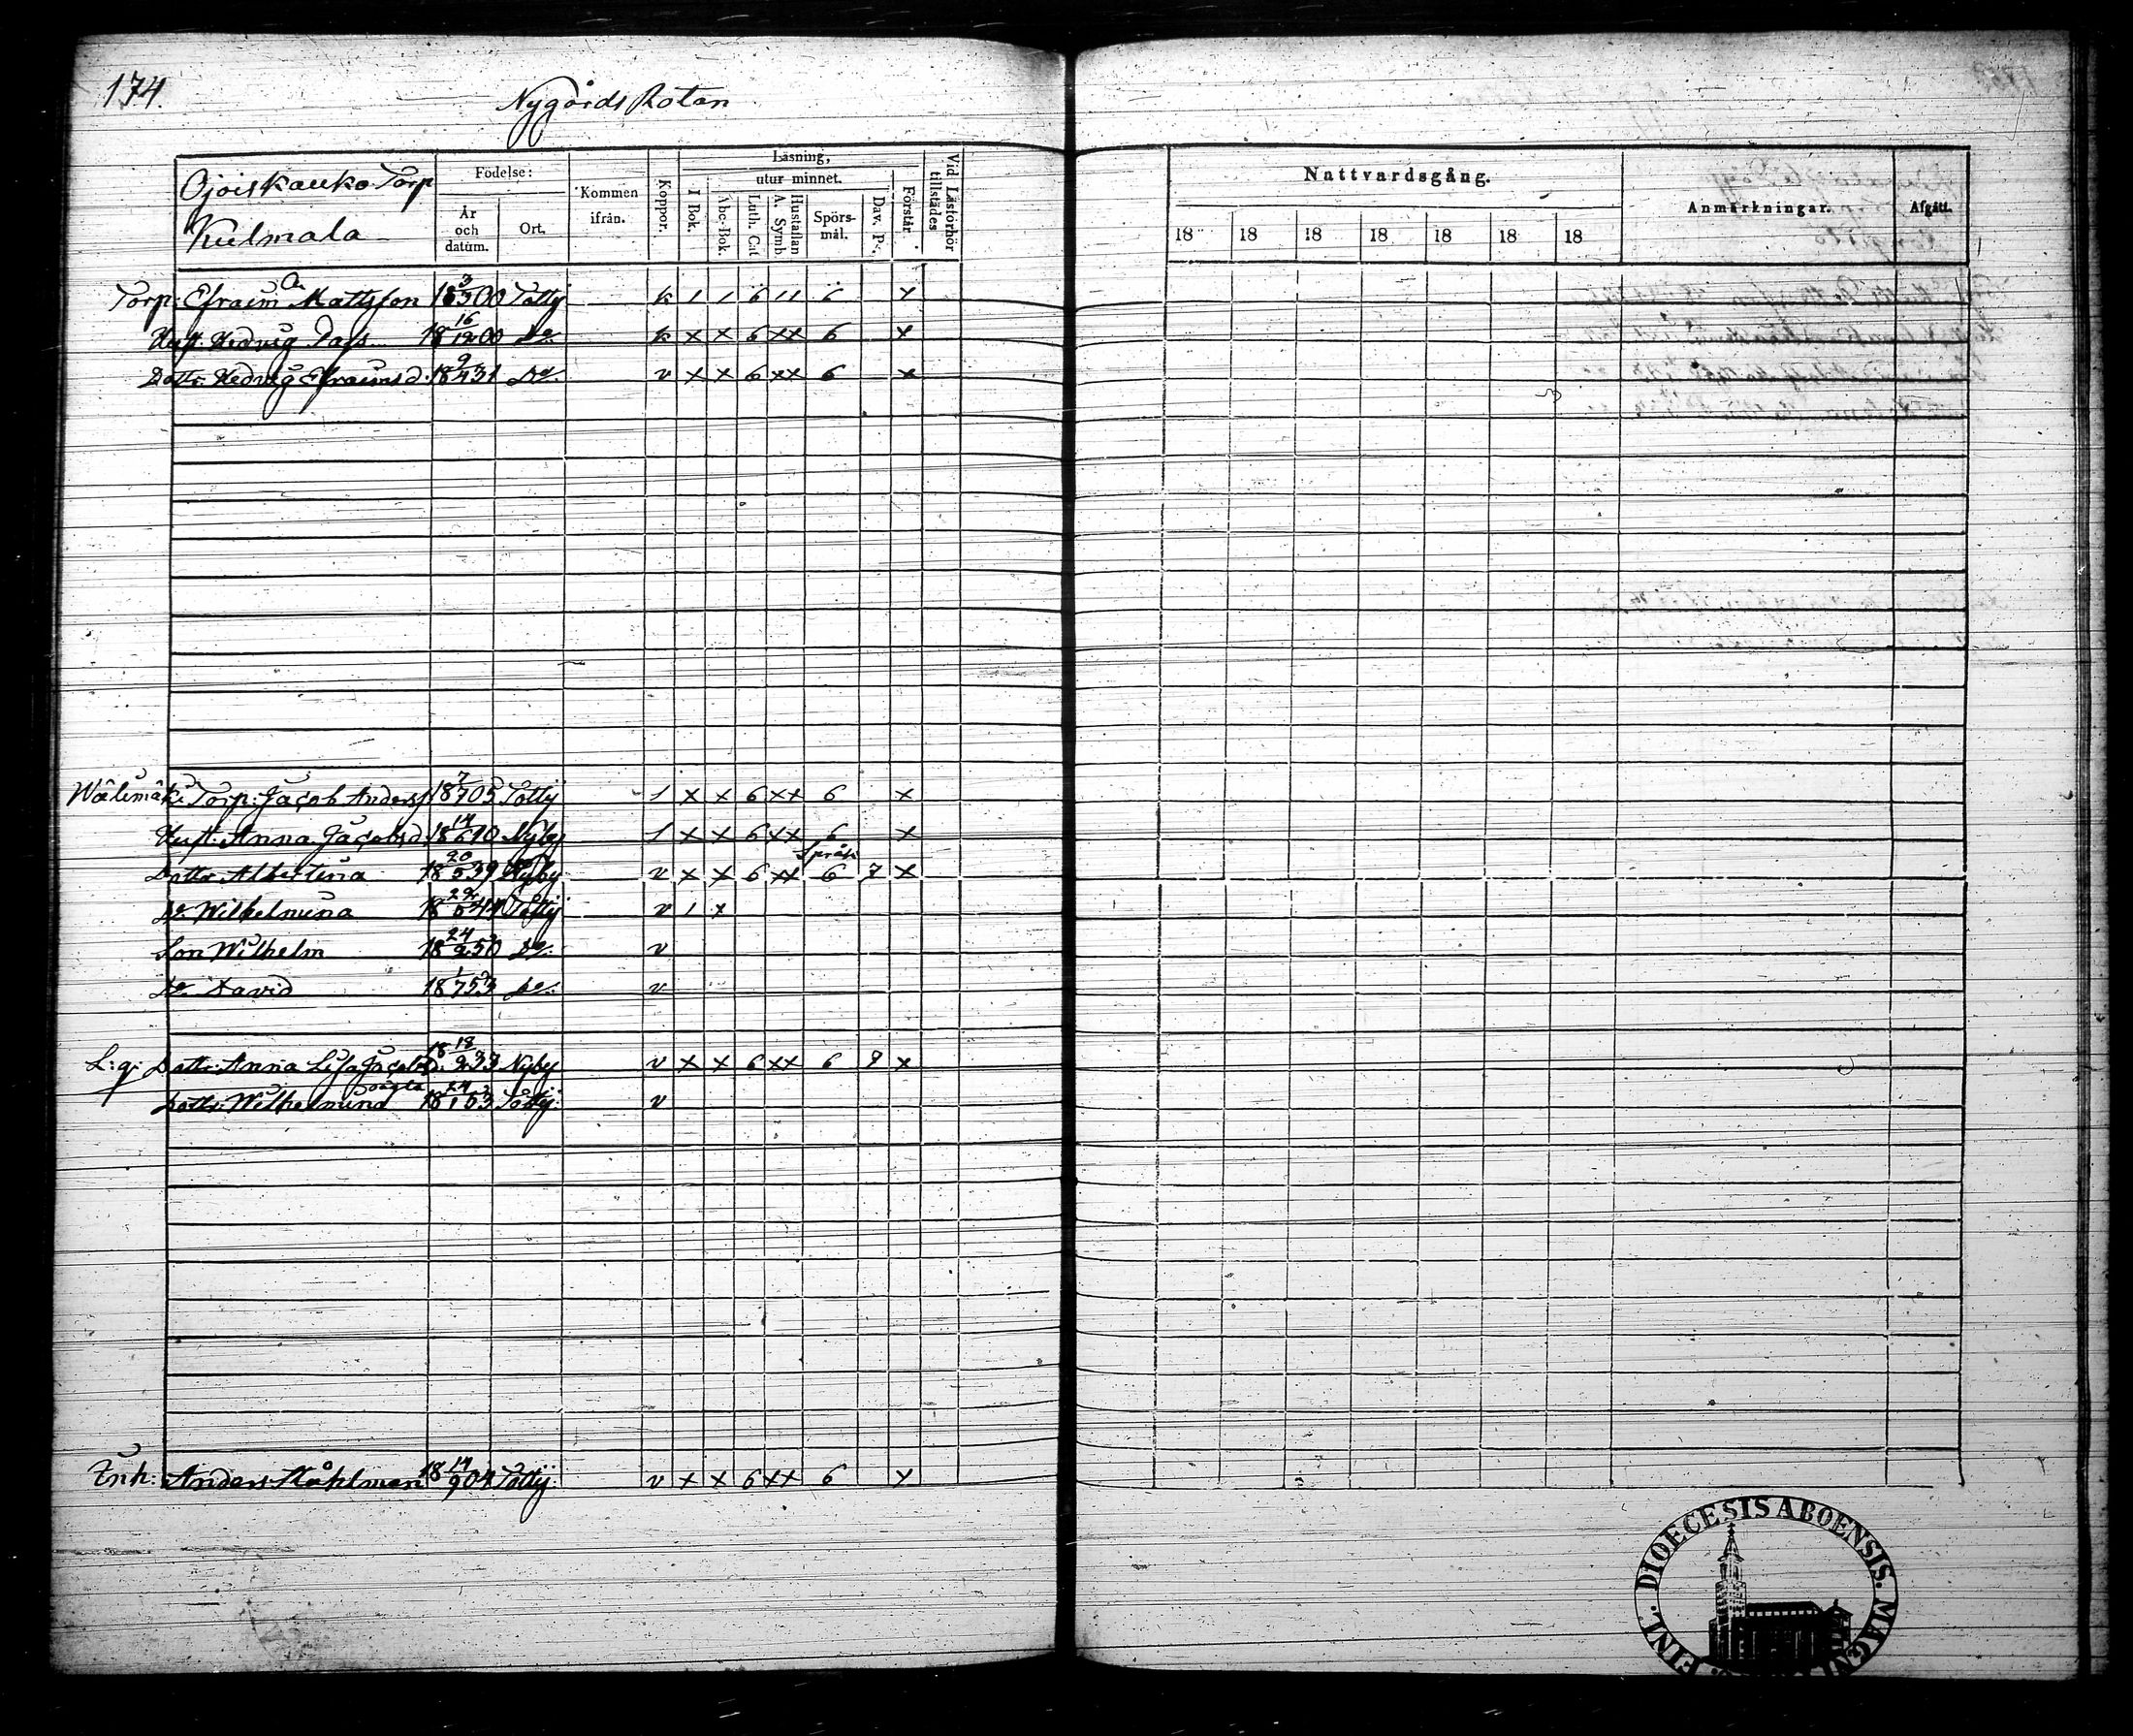 174.
Nygårds Rotan
Ojoiskauko Torp
Kulmala
Födelse:
År och datum.
Ort.
Kommen ifrån.
Koppor.
Läsning,
utur minnet.
I Bok.
Abc-Bok.
Luth. Cat
Hustaflan A. Symb.
Spörsmål.
Dav. Ps.
Förstår
Vid Läsförhör tillstädes
Nattvardsgång.
Anmärkningar.
Afgått.
18 18 18 18 18 18 18
Torp: Efraim Mattsson 18 3/5 00 Töttij k 1 1 6 11 6 x
Hust: Hedvig 18 16/12 00 Do k x x 6 xx 6 x
Dottr: Hedvig Efraimsd. 18 9/4 31 Do v x x 6 xx 6 x
Wälimäki Torp: Jacob Anderss 18 7/7 05 Töttij 1 x x 6 xx 6 x
Hust: Anna Jacobsd. 18 14/6 10 Nyby 1 x x 6 xx 6 x
Dottr Albertina 18 20/5 39 Nyby v x x 6 xx 6 7 x
Do Wilhelmina 18 Töttij v 1 x
Son Wilhelm 18 24/2 50 Do v
Do David 18 1/7 53 Do v
L:q: Dottr: Anna Lisa Jacobsd. 18 18/2 33 Nyby v x x 6 xx 6 8 x
oägta
Dottr: Wilhelmina 18 24/1 53 Töttij v
Inh: Anders Ståhlman 18 14/9 04 Töttij v x x 6 xx 6 x
DIOECESIS ABOENSIS. MAGNI
FINL.